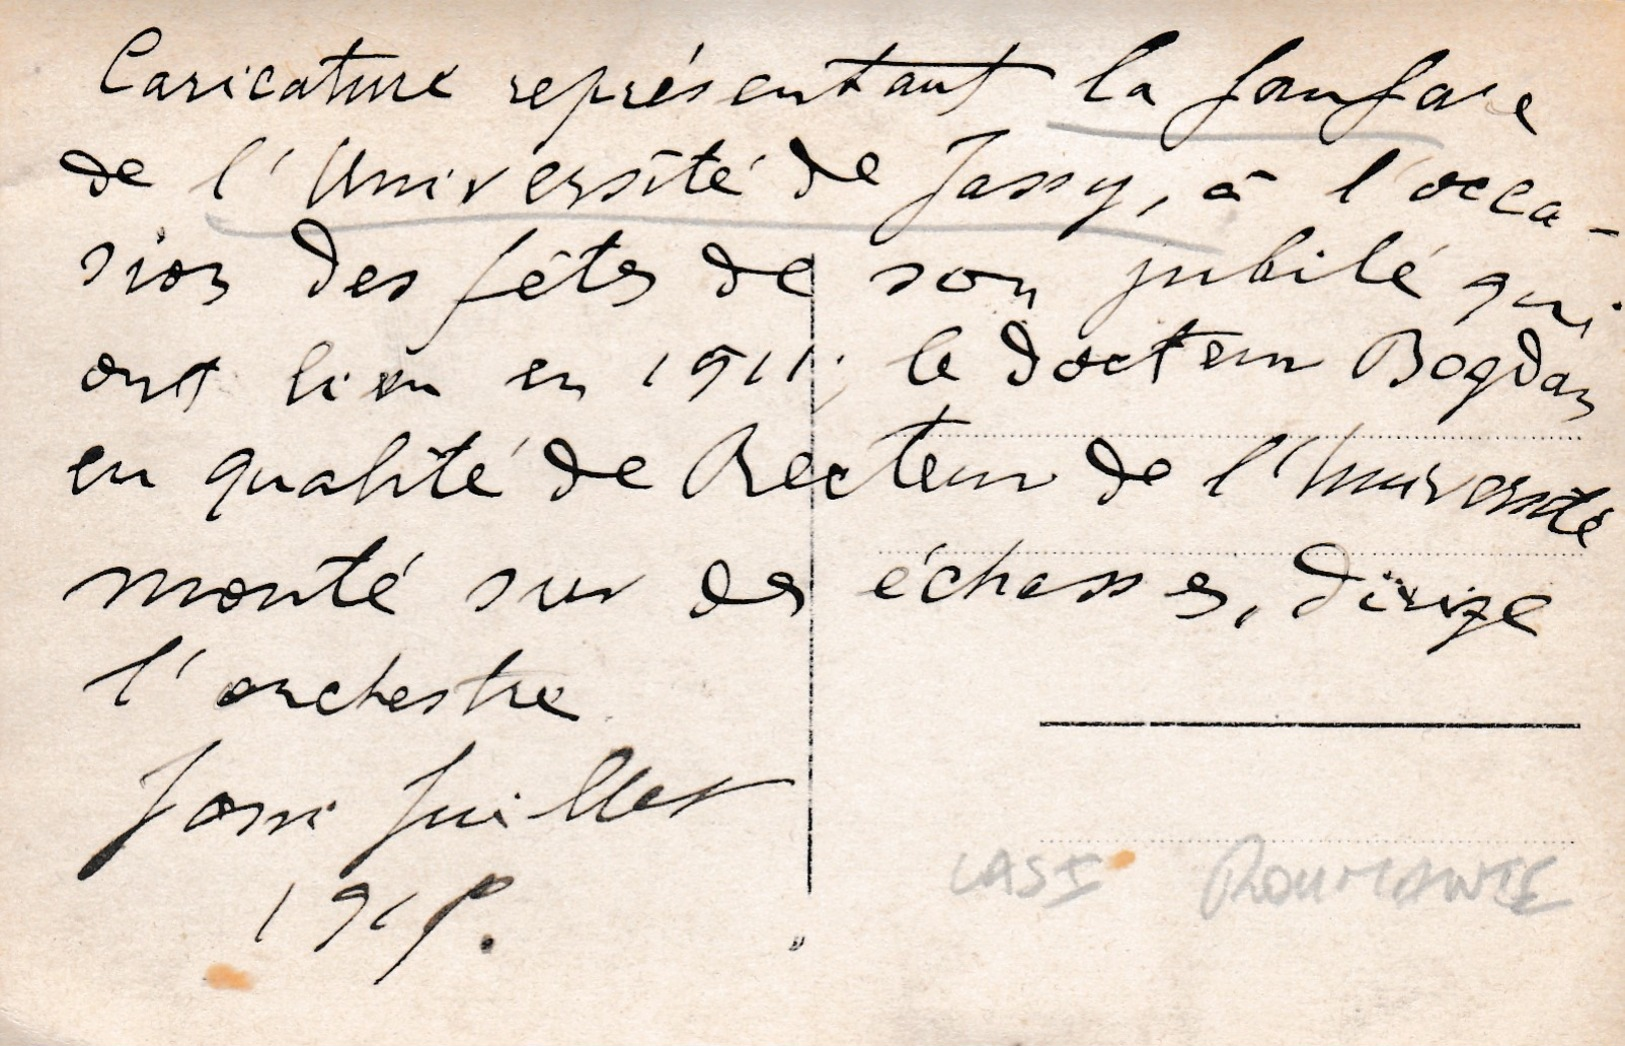 Caricature représentant la fanfare
de l'Université de Jassy, à l'occa-
sion des fêtes de son jubilé qui
ont lieu en 1911; le docteur Bogdan
en qualité de Recteur de l'Université
monté sur des échasses, dirige
l'orchestre
Jassi Juillet
IASI ROUMANIE